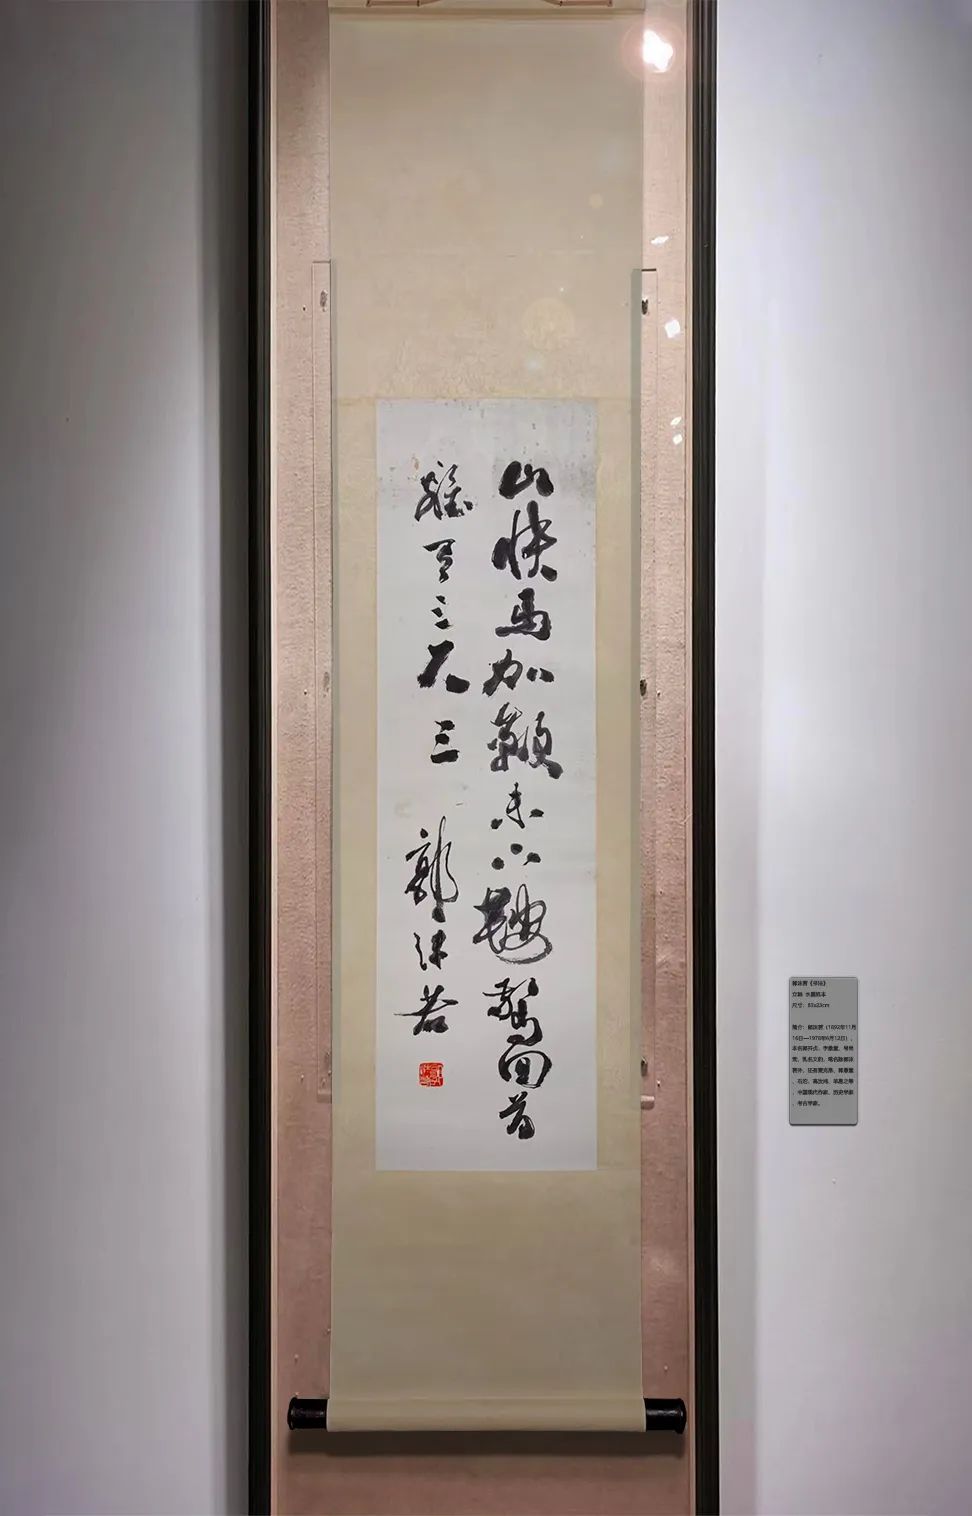 山快馬加鞭未下鞍驚回首
離天三尺三 郭沫若
郭沫若《书法》
立轴 水墨纸本
尺寸：83x23cm
简介：郭沫若（1892年11月
16日—1978年6月12日），
本名郭开贞，字鼎堂，号尚
武，乳名文豹，笔名除郭沫
若外，还有麦克昂、郭鼎堂
、石沱、高汝鸿、羊易之等
，中国现代作家、历史学家
、考古学家。